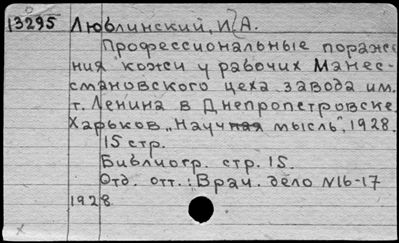 13295 Люблинский, И. А.
Профессиональные пораже-
ния кожи у рабочих Манес-
смановского цеха завода им.
т. Ленина в Днепропетровске.
Харьков, "Научная мысль", 1928.
15 стр.
Библиогр. стр. 15.
Отд. отт.: Врач. дело N16-17
1928